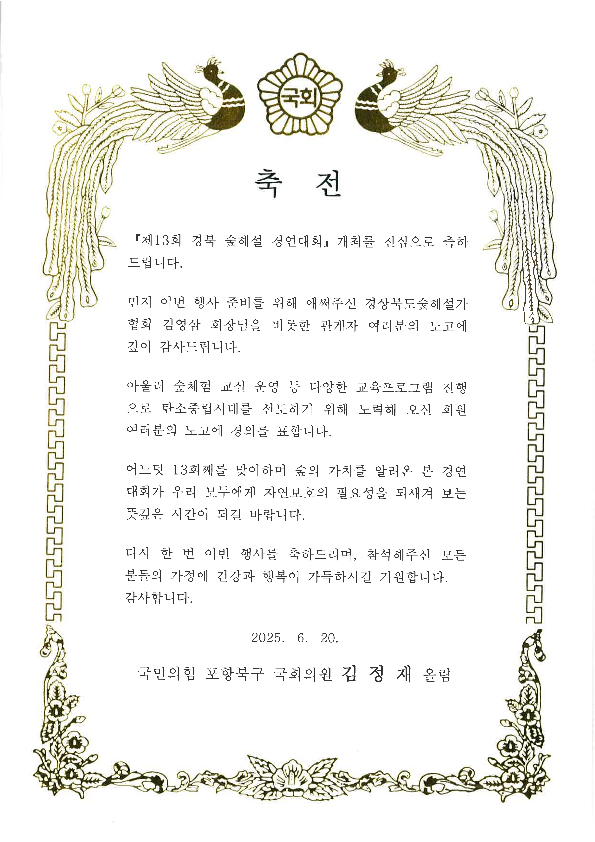 국회
축 전
『제13회 경북 숲해설 경연대회』 개최를 진심으로 축하
드립니다.
먼저 이번 행사 준비를 위해 애써주신 경상북도숲해설가
협회 김영삼 회장님을 비롯한 관계자 여러분의 노고에
깊이 감사드립니다.
아울러 숲체험 교실 운영 등 다양한 교육프로그램 진행
으로 탄소중립시대를 선도하기 위해 노력해 오신 회원
여러분의 노고에 경의를 표합니다.
어느덧 13회째를 맞이하며 숲의 가치를 알려온 본 경연
대회가 우리 모두에게 자연보호의 필요성을 되새겨 보는
뜻깊은 시간이 되길 바랍니다.
다시 한 번 이번 행사를 축하드리며, 참석해주신 모든
분들의 가정에 건강과 행복이 가득하시길 기원합니다.
감사합니다.
2025. 6. 20.
국민의힘 포항북구 국회의원 김 정 재 올림